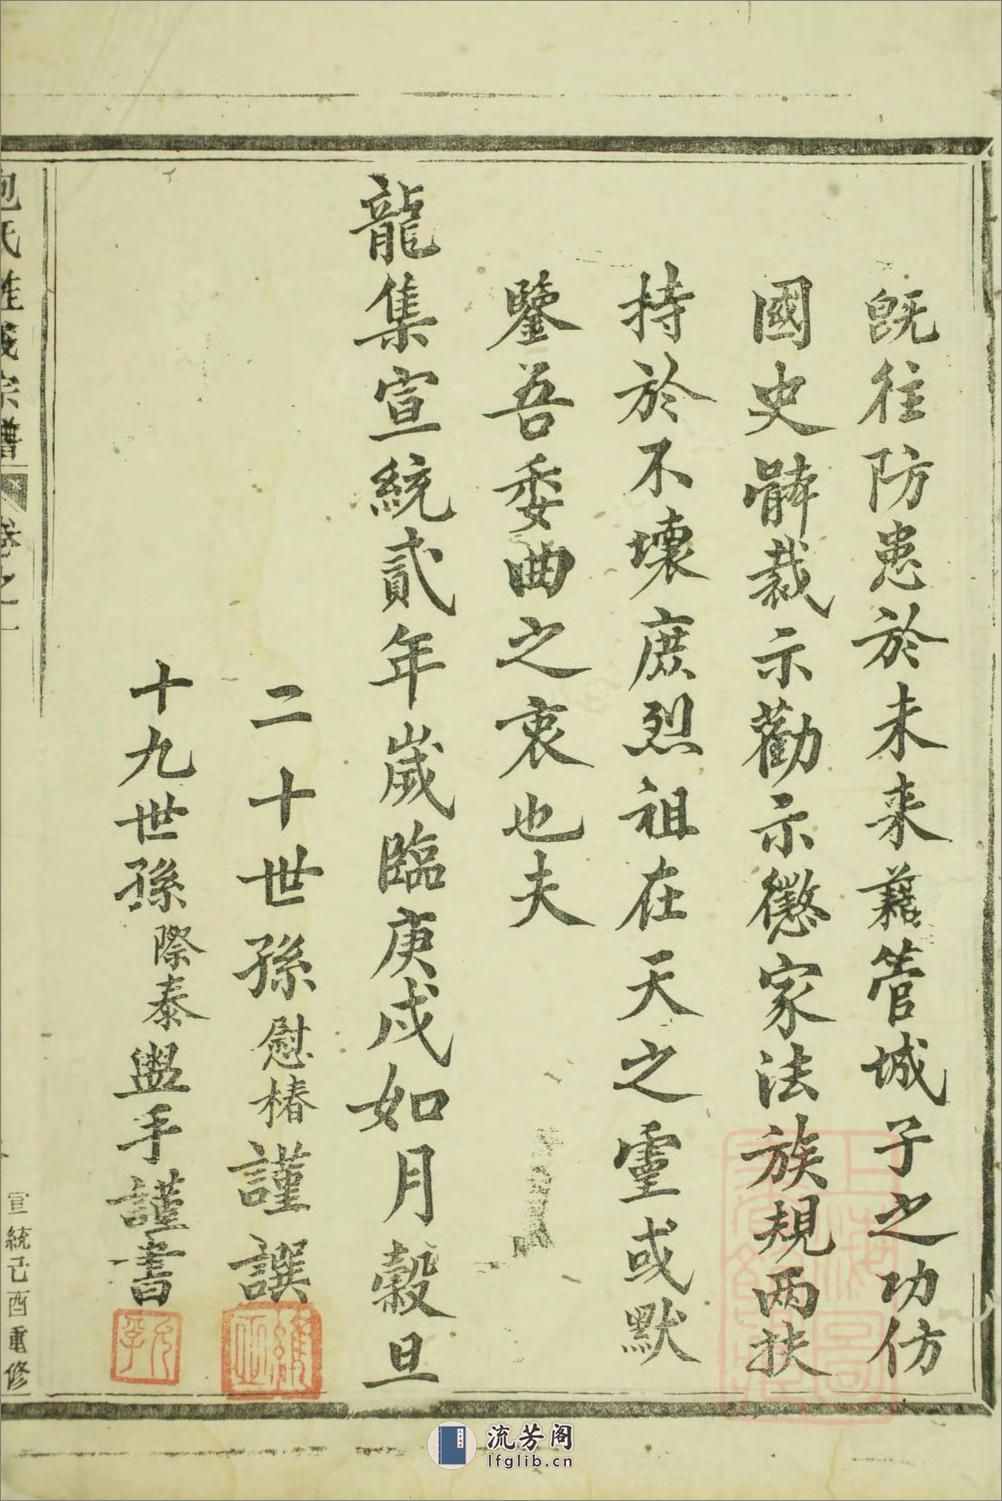 既往防患於未来藉管城子之功仿
國史骵裁示勸示懲家法族規两扶
持於不壞庶烈祖在天之霊或默
鑒吾委曲之衷也夫
龍集宣統貳年歲臨庚戍如月榖旦
二十世孫慰椿謹譔
十九世孫際泰盥手謹書
氏
宗譜
卷之一
宣統己酉重修
流芳阁
lfglib.cn